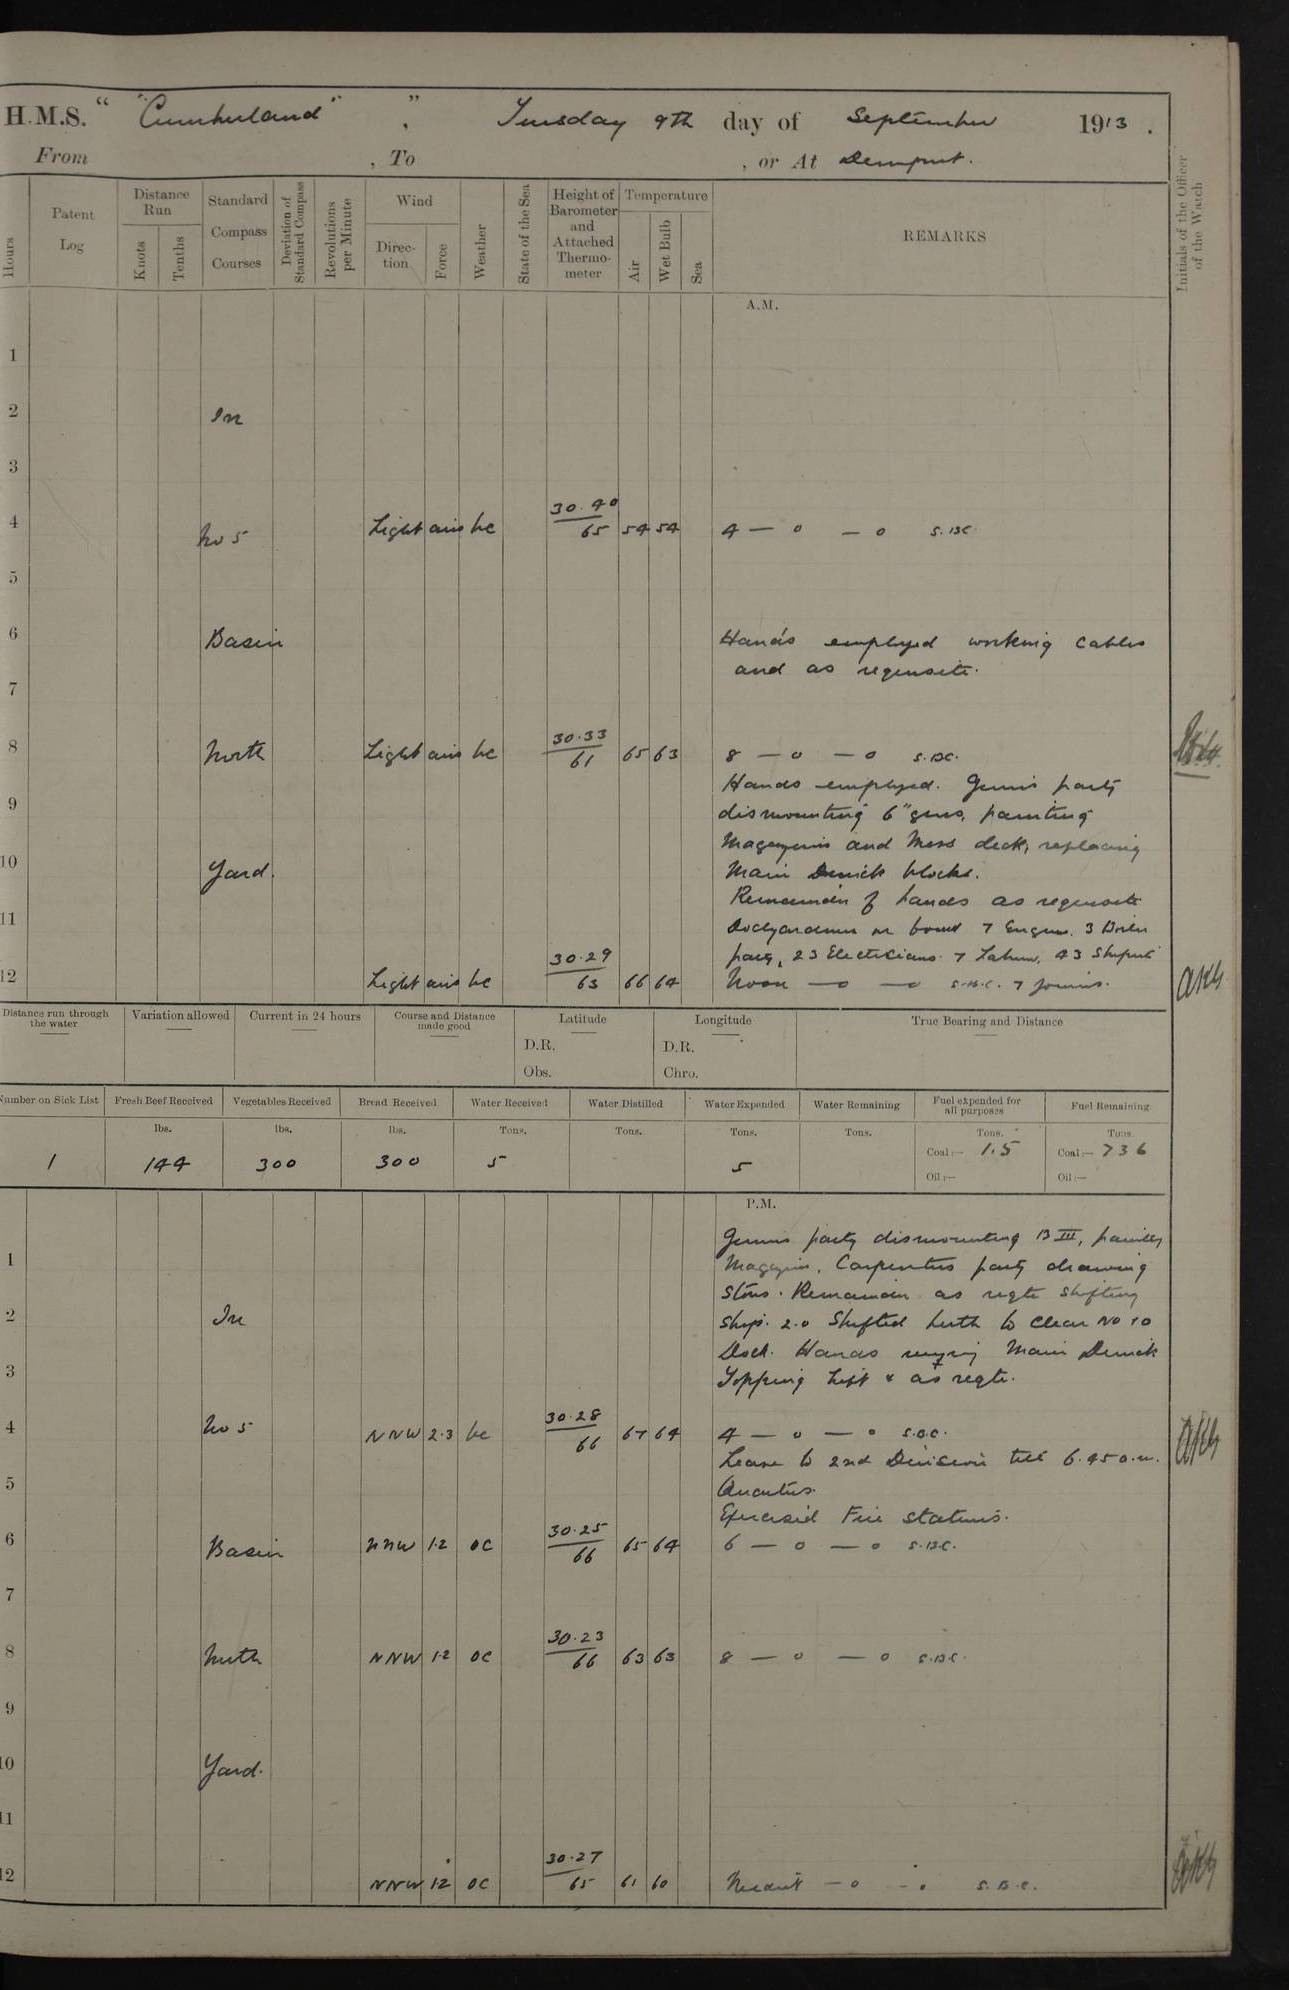 H.M.S. " "Cumberland" " , Tuesday 9th day of September 1913.
From , To , or At Devonport.
Hours
Patent Log
Distance Run
Knots
Tenths
Standard Compass Courses
Deviation of Standard Compass
Revolutions per Minute
Wind
Direction
Force
Weather
State of the Sea
Height of Barometer and Attached Thermometer
Temperature
Air
Wet Bulb
Sea
REMARKS
Initials of the Officer of the Watch
A.M.
1
2 In
3
4 No 5 Light airs bc 30.40 65 54 54 4 — o — o S.B.C.
5
6 Basin Hands employed working cables
and as requisite.
7
8 North Light airs bc 30.33 61 65 63 8 — o — o S.B.C.
Hands employed. Gunner's party
9 dismounting 6" guns, painting
Magazines and Mess deck, replacing
10 Yard. Main Derrick blocks.
Remainder of hands as requisite
11 Dockyardmen on board 7 Engin. 3 Boiler
party, 23 Electricians 7 Labour, 43 Shipwt
12 Light airs bc 30.29 63 66 64 Noon — o — o S.B.C. 7 Joiners.
Distance run through the water
Variation allowed
Current in 24 hours
Course and Distance made good
Latitude
D.R.
Obs.
Longitude
D.R.
Chro.
True Bearing and Distance
Number on Sick List
Fresh Beef Received
Vegetables Received
Bread Received
Water Received
Water Distilled
Water Expended
Water Remaining
Fuel expended for all purposes
Fuel Remaining
lbs. lbs. lbs. Tons. Tons. Tons. Tons. Tons. Tons.
1 144 300 300 5 5 Coal:— 1.5 Coal:— 736
Oil:— Oil:—
P.M.
Gunner's party dismounting B III, painting
1 Magazine, Carpenters party drawing
Stores. Remainder as reqte shifting
2 In Ship. 2.0 Shifted berth to clear No 10
Dock. Hands reeving Main Derrick
3 Topping Lift & as reqte.
4 No 5 NNW 2.3 bc 30.28 66 67 64 4 — o — o S.B.C.
Leave to 2nd Division till 6.45 a.m.
5 Quarters.
Exercised Fire stations.
6 Basin NNW 1.2 oc 30.25 66 65 64 6 — o — o S.B.C.
7
8 North NNW 1.2 oc 30.23 66 63 63 8 — o — o S.B.C.
9
10 Yard.
11
12 NNW 1.2 oc 30.27 65 61 60 Midnt — o — o S.B.C.